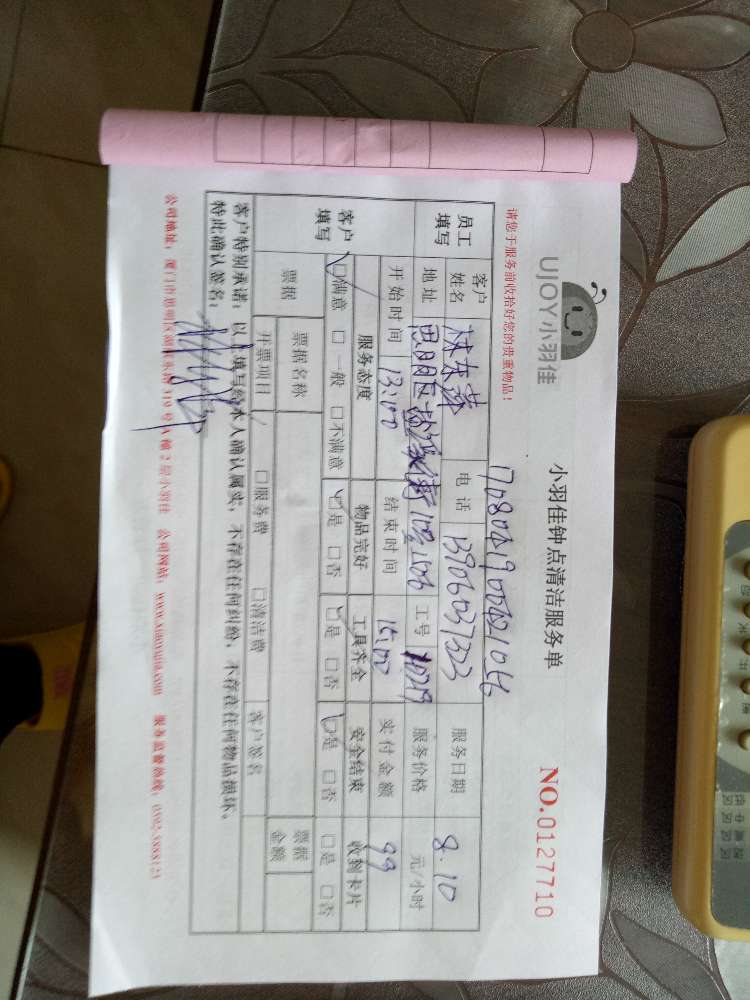 UJOY小羽佳
小羽佳钟点清洁服务单
NO.0127710
请您于服务前收拾好您的贵重物品！
员工填写
客户姓名
电话 13906037323
服务日期 8.10
地址 思明区
工号
服务价格 元/小时
开始时间 13:00
结束时间 15:00
实付金额 99
客户填写
服务态度 物品完好 工具齐全 安全结束 收到卡片
□满意 □一般 □不满意 □是 □否 □是 □否 □是 □否 □是 □否
票据 票据名称 票据金额
开票项目 □服务费 □清洁费 客户签名
客户特别承诺：以上填写经本人确认属实，不存在任何纠纷，不存在任何物品损坏，
特此确认签名：
公司地址：厦门市思明区湖滨东路319号A幢2层小羽佳 公司网站：www.xiaoyujia.com 服务监督热线：